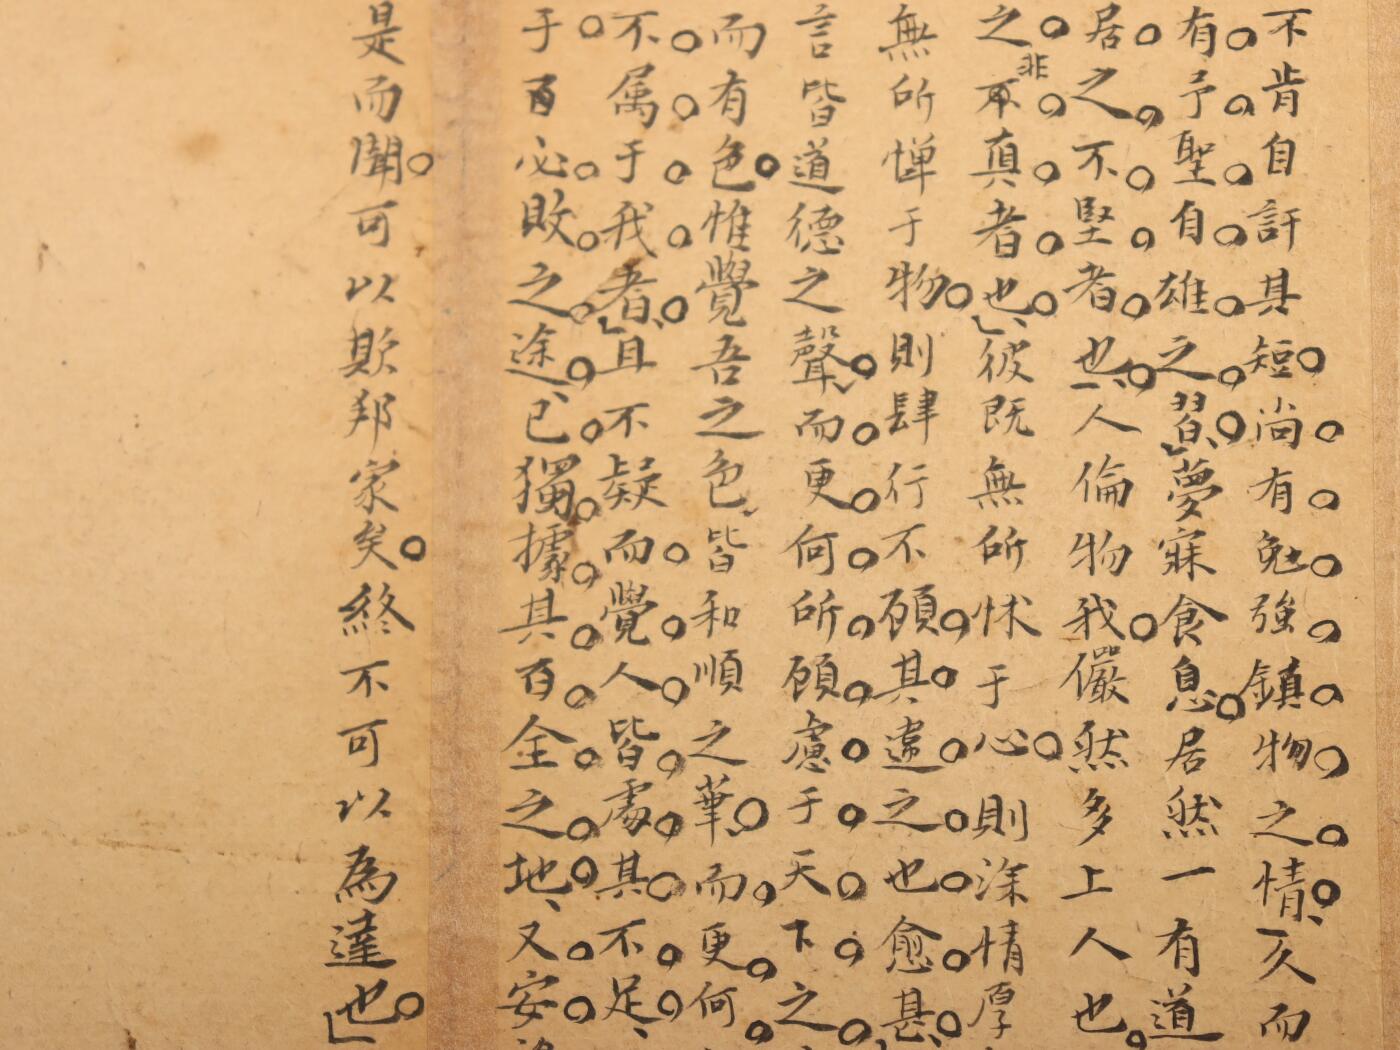 不肯自訐其短尚有勉強鎮物之情久而
有予聖自雄之習夢寐食息居然一有道
居之不堅者也人倫物我儼然多上人也
之非真者也彼既無所怵于心則深情厚
無所憚于物則肆行不顧其違之也愈甚
言皆道德之聲而更何所顧慮于天下之
而有色惟覺吾之色皆和順之華而更何
不属于我者且不疑而覺人皆處其不足
于百必敗之途已獨據其百全之地又安
是而聞可以欺邦家矣終不可以為達也